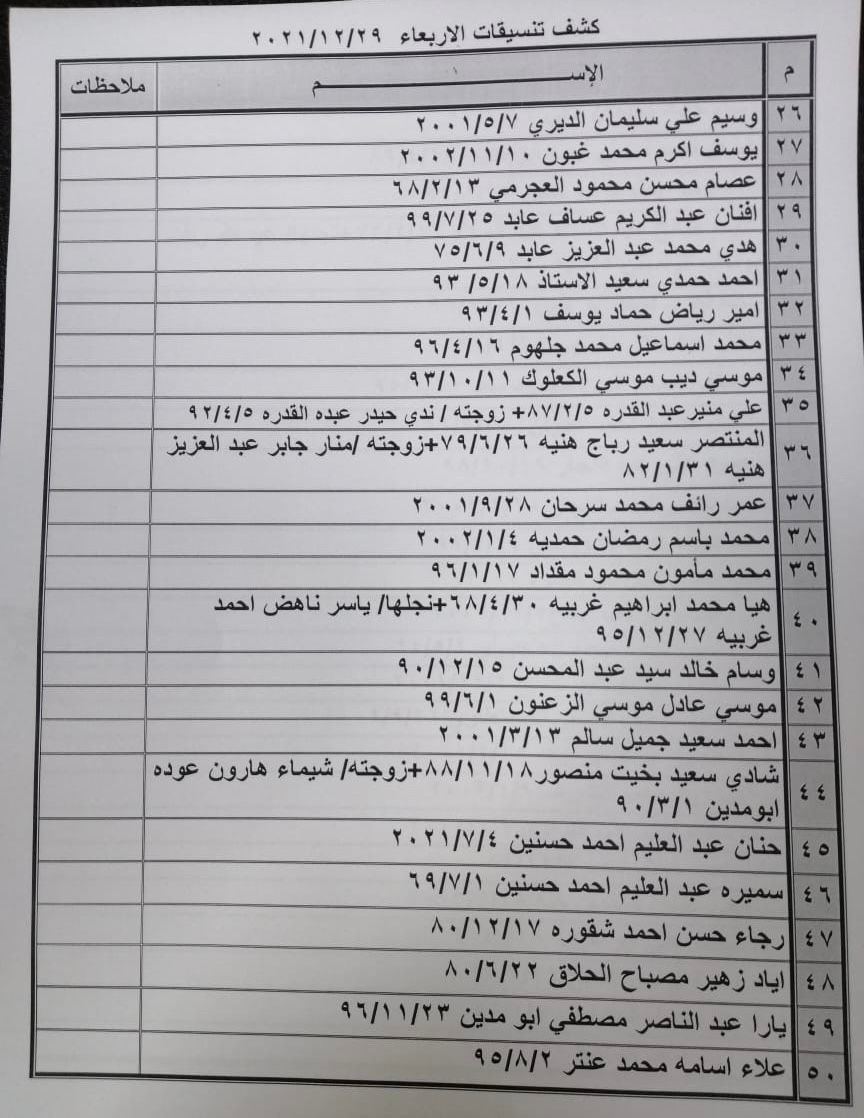 كشف تنسيقات الاربعاء ٢٠٢١/١٢/٢٩
م الإســـــــم ملاحظات
٢٦ وسيم علي سليمان الديري ٢٠٠١/٥/٧
٢٧ يوسف اكرم محمد غبون ٢٠٠٢/١١/١٠
٢٨ عصام محسن محمود العجرمي ٦٨/٢/١٣
٢٩ افنان عبد الكريم عساف عابد ٩٩/٧/٢٥
٣٠ هدي محمد عبد العزيز عابد ٧٥/٦/٩
٣١ احمد حمدي سعيد الاستاذ ٩٣ /٥/١٨
٣٢ امير رياض حماد يوسف ٩٣/٤/١
٣٣ محمد اسماعيل محمد جلهوم ٩٦/٤/١٦
٣٤ موسي ديب موسي الكعلوك ٩٣/١٠/١١
٣٥ علي منيرعبد القدره ٨٧/٢/٥+ زوجته / ندي حيدر عبده القدره ٩٢/٤/٥
٣٦ المنتصر سعيد رباح هنيه ٧٩/٦/٢٦+زوجته /منار جابر عبد العزيز
هنيه ٨٢/١/٣١
٣٧ عمر رائف محمد سرحان ٢٠٠١/٩/٢٨
٣٨ محمد باسم رمضان حمديه ٢٠٠٢/١/٤
٣٩ محمد مأمون محمود مقداد ٩٦/١/١٧
٤٠ هيا محمد ابراهيم غربيه ٦٨/٤/٣٠+نجلها/ ياسر ناهض احمد
غربيه ٩٥/١٢/٢٧
٤١ وسام خالد سيد عبد المحسن ٩٠/١٢/١٥
٤٢ موسي عادل موسي الزعنون ٩٩/٦/١
٤٣ احمد سعيد جميل سالم ٢٠٠١/٣/١٣
٤٤ شادي سعيد بخيت منصور٨٨/١١/١٨+زوجته/ شيماء هارون عوده
ابومدين ٩٠/٣/١
٤٥ حنان عبد العليم احمد حسنين ٢٠٢١/٧/٤
٤٦ سميره عبد العليم احمد حسنين ٦٩/٧/١
٤٧ رجاء حسن احمد شقوره ٨٠/١٢/١٧
٤٨ اياد زهير مصباح الحلاق ٨٠/٦/٢٢
٤٩ يارا عبد الناصر مصطفي ابو مدين ٩٦/١١/٢٣
٥٠ علاء اسامه محمد عنتر ٩٥/٨/٢